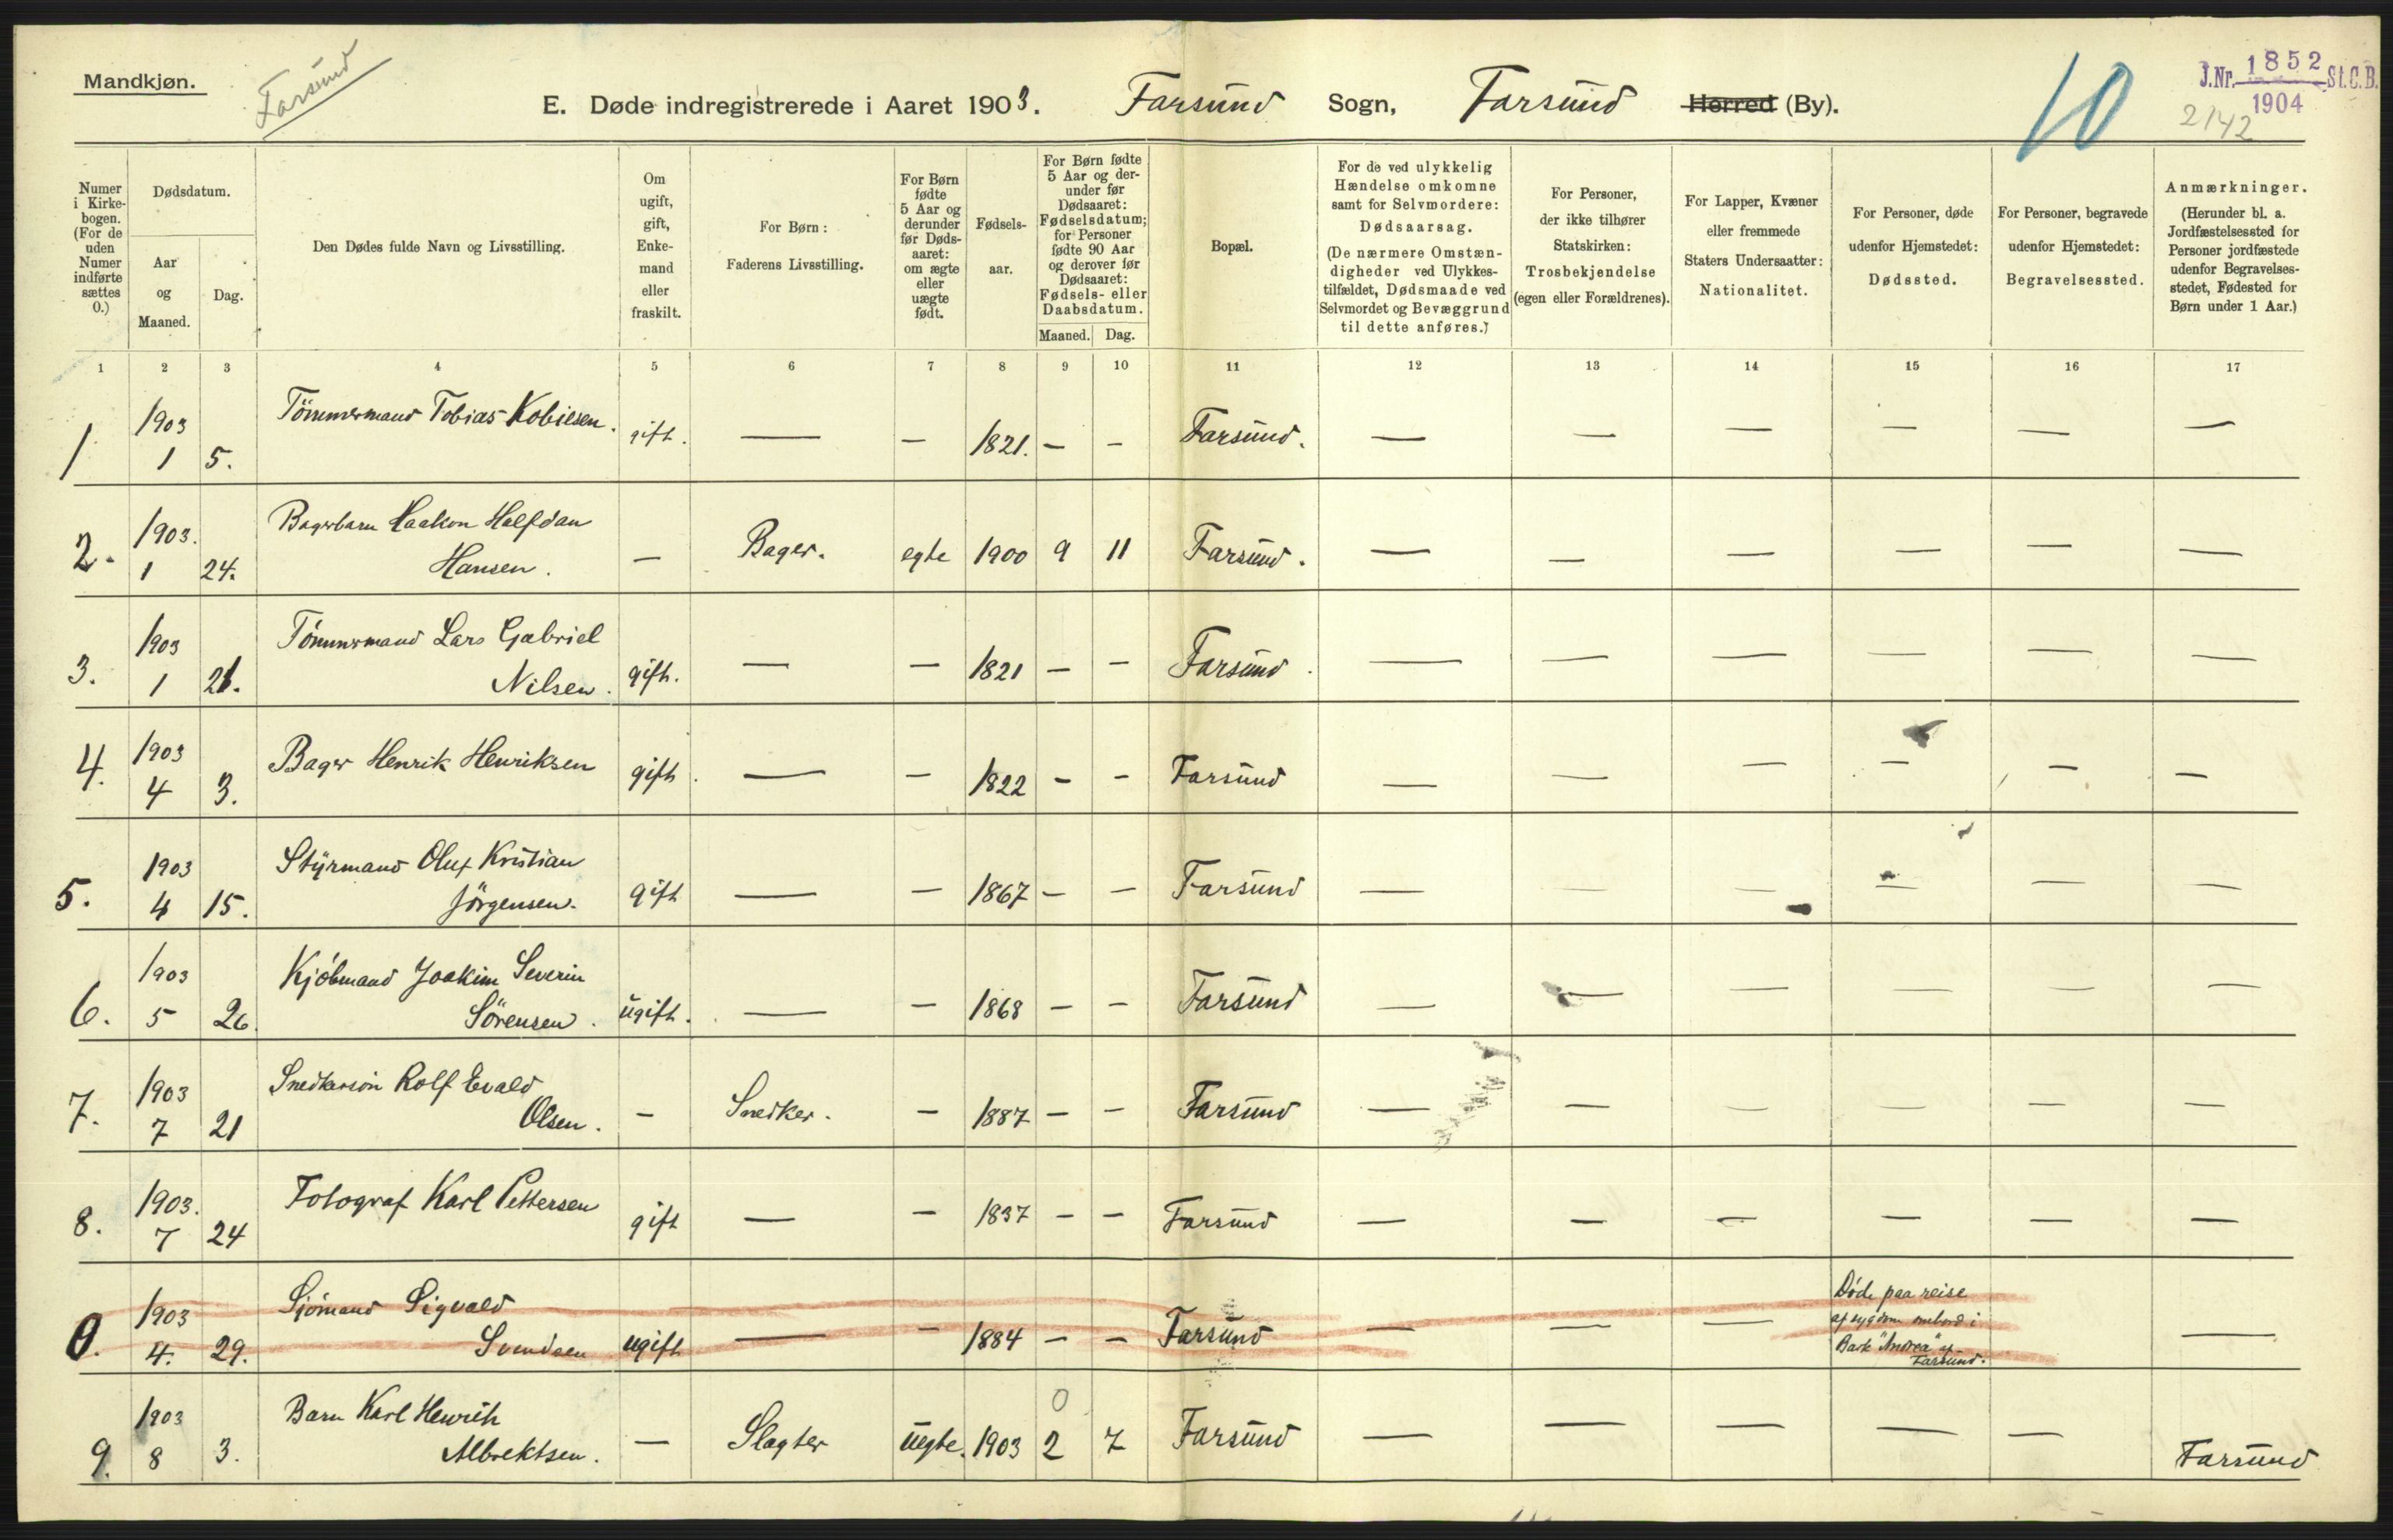 Mandkjøn.
Farsund
E. Døde indregistrerede i Aaret 1903. Farsund Sogn, Farsund Herred (By).
10
J.Nr. 1852 St.C.B.
1904
2142
Numer i Kirke-bogen. (For de uden Numer indførte sættes 0.)
Dødsdatum.
Aar og Maaned.
Dag.
Den Dødes fulde Navn og Livsstilling.
Om ugift, gift, Enke-mand eller fraskilt.
For Børn: Faderens Livsstilling.
For Børn fødte 5 Aar og derunder før Døds-aaret: om ægte eller uægte født.
Fødsels-aar.
For Børn fødte 5 Aar og der-under før Dødsaaret: Fødselsdatum; for Personer fødte 90 Aar og derover før Dødsaaret: Fødsels- eller Daabsdatum.
Maaned. Dag.
Bopæl.
For de ved ulykkelig Hændelse omkomne samt for Selvmordere: Dødsaarsag. (De nærmere Omstæn-digheder ved Ulykkes-tilfældet, Dødsmaade ved Selvmordet og Bevæggrund til dette anføres.)
For Personer, der ikke tilhører Statskirken: Trosbekjendelse (egen eller Forældrenes).
For Lapper, Kvæner eller fremmede Staters Undersaatter: Nationalitet.
For Personer, døde udenfor Hjemstedet: Dødssted.
For Personer, begravede udenfor Hjemstedet: Begravelsessted.
Anmærkninger. (Herunder bl. a. Jordfæstelsessted for Personer jordfæstede udenfor Begravelses-stedet, Fødested for Børn under 1 Aar.)
1 2 3 4 5 6 7 8 9 10 11 12 13 14 15 16 17
1 1903 1 5. Tömmermand Tobias Kobiesen. gift. — — 1821. — — Farsund. — — — — — —
2. 1903. 1 24. Bagerbarn Haakon Halfdan Hansen. — Bager. egte 1900 9 11 Farsund. — — — — — —
3. 1903 1 21. Tömmermand Lars Gabriel Nilsen. gift. — — 1821 — — Farsund — — — — — —
4. 1903 4 3. Bager Henrik Henriksen gift. — — 1822 — — Farsund — — — — — —
5. 1903 4 15. Styrmand Oluf Kristian Jörgensen. gift — — 1867 — — Farsund — — — — — —
6. 1903 5 26. Kjöbmand Joakim Severin Sörensen. ugift. — — 1868 — — Farsund — — — — — —
7. 1903 7 21 Snedkersön Rolf Evald Olsen. — Snedker. — 1887 — — Farsund — — — — — —
8. 1903. 7 24 Fotograf Karl Pettersen gift — — 1837 — — Farsund — — — — — —
0. 1903 4. 29. Sjömand Sigvald Svendsen ugift — — 1884 — — Farsund — — — Död paa reise af sygdom ombord i Bark "Andrea" af Farsund. —
9. 1903 8 3. Barn Karl Henrik Albrektsen. — Slagter uegte. 1903 0 2 7 Farsund — — — — — Farsund